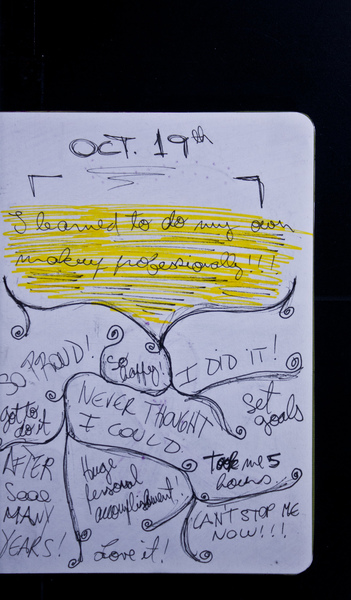 OCT. 19th
I learned to do my own
makeup professionally!!!
SO PROUD!
So
happy!
I DID IT!
NEVER THOUGHT
I COULD
Set
goals
got to
do it
AFTER
Sooo
MANY
YEARS!
Huge
personal
accomplishment!
Took me 5
hours
CAN'T STOP ME
NOW!!!
Love it!